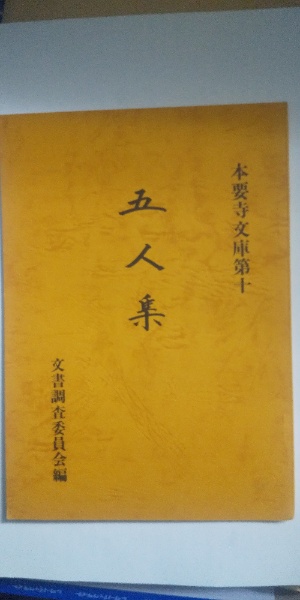 本要寺文庫第十
五人集
文書調査委員会編